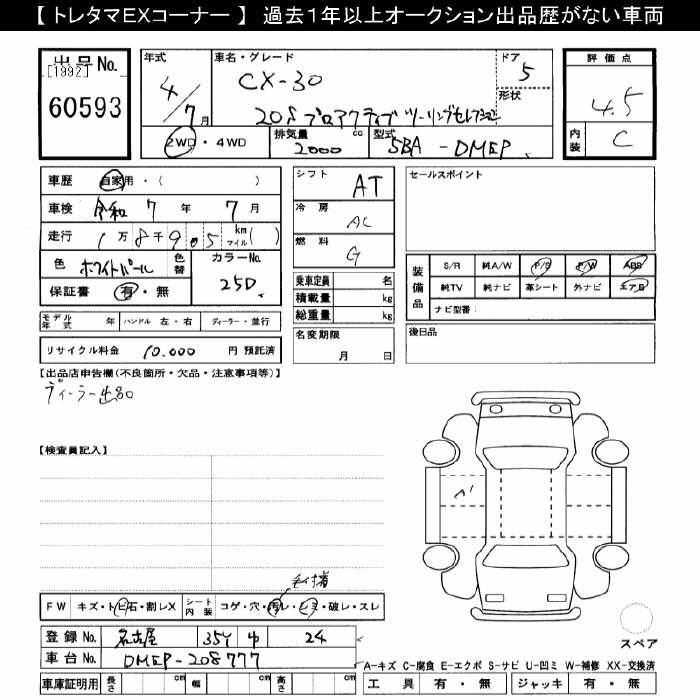 【 トレタマEXコーナー 】 過去1年以上オークション出品歴がない車両
出品No.
【1992】
60593
年式
4/7月
車名・グレード
CX-30
20S プロアクティブ ツーリングセレクション
ドア
5
形状
2WD・4WD
排気量
2000 cc
型式
5BA - DMEP
評価点
4.5
内装
C
車歴 自家用・( )
車検 令和 7 年 7 月
走行 1万8千905 km マイル( )
色 ホワイトパール 色替
カラーNo.
25D
保証書 有・無
シフト
AT
冷房
AC
燃料
G
乗車定員 名
積載量 kg
総重量 kg
名変期限
月 日
セールスポイント
装備品
S/R 純A/W P/S P/W ABS
純TV 純ナビ 革シート 外ナビ エアB
ナビ型番:
後日品
モデル年式 年 ハンドル 左・右 ディーラー・並行
リサイクル料金 10.000 円 預託済
【出品店申告欄(不良箇所・欠品・注意事項等)】
ディーラー出品
【検査員記入】
A'
FW キズ・トビ石・割レX シート内装 コゲ・穴・汚レ・シミ・破レ・スレ
登録No. 名古屋 351 ゆ 24
車台No. DMEP-208777
車庫証明用 長さ cm 幅 cm 高さ cm
スペア
A-キズ C-腐食 E-エクボ S-サビ U-凹ミ W-補修 XX-交換済
工具 有・無 ジャッキ 有・無